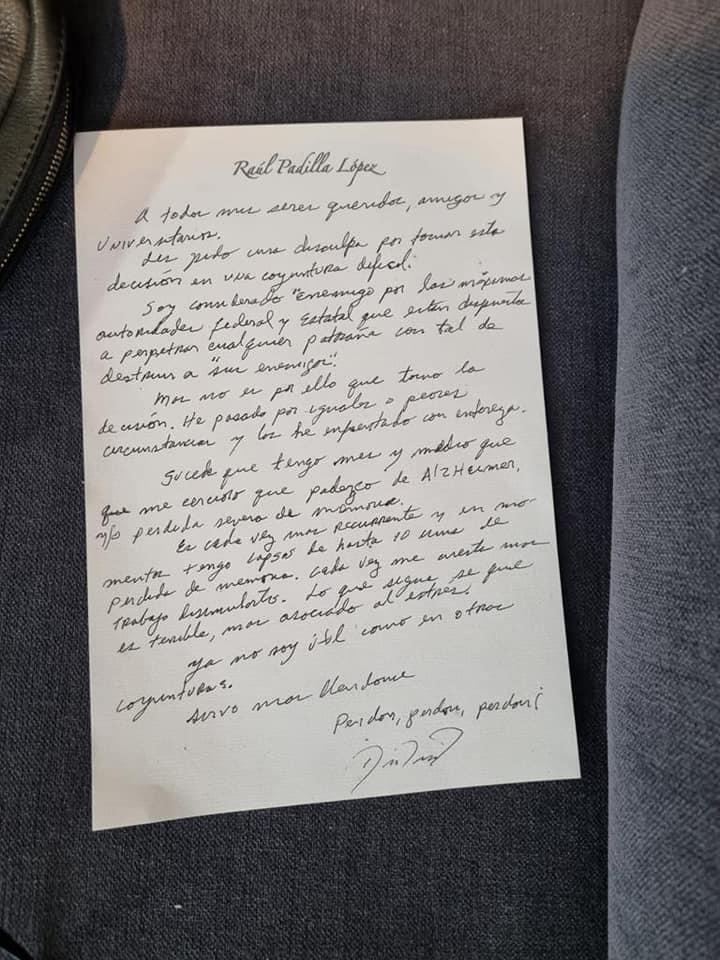 Raúl Padilla López
A todos mis seres queridos, amigos y
universitarios.
Les pido una disculpa por tomar esta
decisión en una coyuntura difícil.
Soy considerado "enemigo por las máximas
autoridades federal y Estatal que están dispuestas
a perpetrar cualquier patraña con tal de
destruir a "sus enemigos".
Mas no es por ello que tomo la
decisión. He pasado por iguales o peores
circunstancias y los he enfrentado con entereza.
Sucede que tengo mes y medio que
que me cercioro que padezco de Alzheimer,
y/o perdida severa de memoria.
Es cada vez mas recurrente y en mo-
mentos tengo lapsos de hasta 10 mins de
perdida de memoria. Cada vez me cuesta mas
trabajo disimularlo. Lo que sigue se que
es terrible, mas asociado al estres.
Ya no soy útil como en otras
coyunturas.
Sirvo mas
Perdon, perdon, perdon!